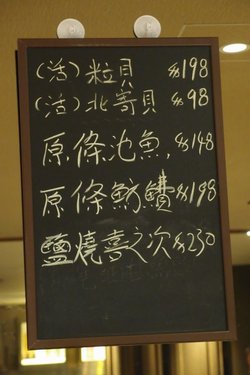 (活)粒貝 $198
(活)北寄貝 $98
原條池魚 $148
原條魴鱝 $198
鹽燒喜之次 $230